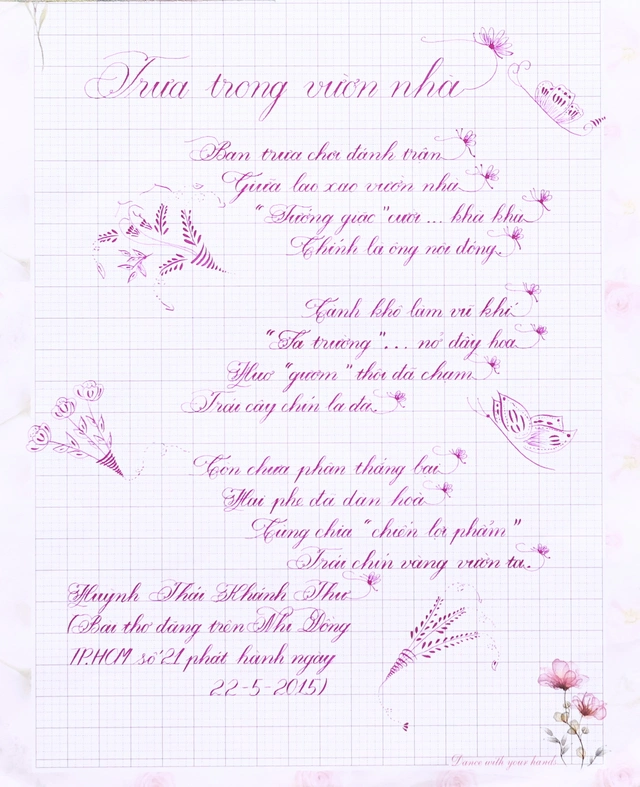 Trưa trong vườn nhà
Ban trưa chơi đánh trận
Giữa lao xao vườn nhà
"Tướng giặc" cười ... khà khà
Chính là ông nội đóng.
Cành khô làm vũ khí
"Tá trường" ... nở đầy hoa
Huơ "gươm" thôi đã chạm
Trái cây chín la đà.
Còn chưa phân thắng bại
Hai phe đã dàn hoà
Cùng chia "chiến lợi phẩm"
Trái chín vàng vườn ta.
Huỳnh Thái Khánh Thư
(Bài thơ đăng trên Nhi Đồng
TP.HCM số 21 phát hành ngày
22-5-2015)
Dance with your hands